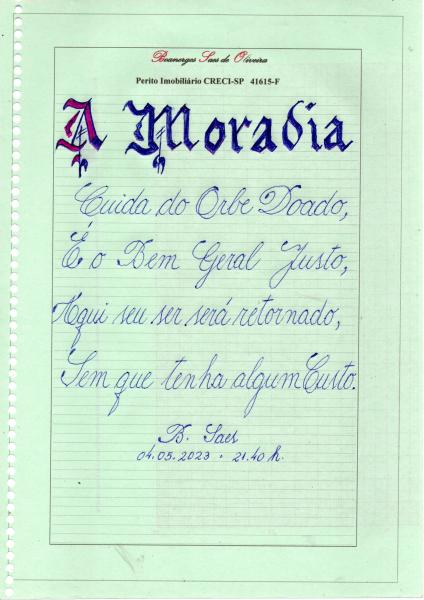 Boanerges Saes de Oliveira
Perito Imobiliário CRECI-SP 41615-F
A Moradia
Cuida do Orbe Doado,
É o Bem Geral Justo,
Aqui seu ser será retornado,
Sem que tenha algum Custo.
B. Saes
04.05.2023 . 21.40 h.